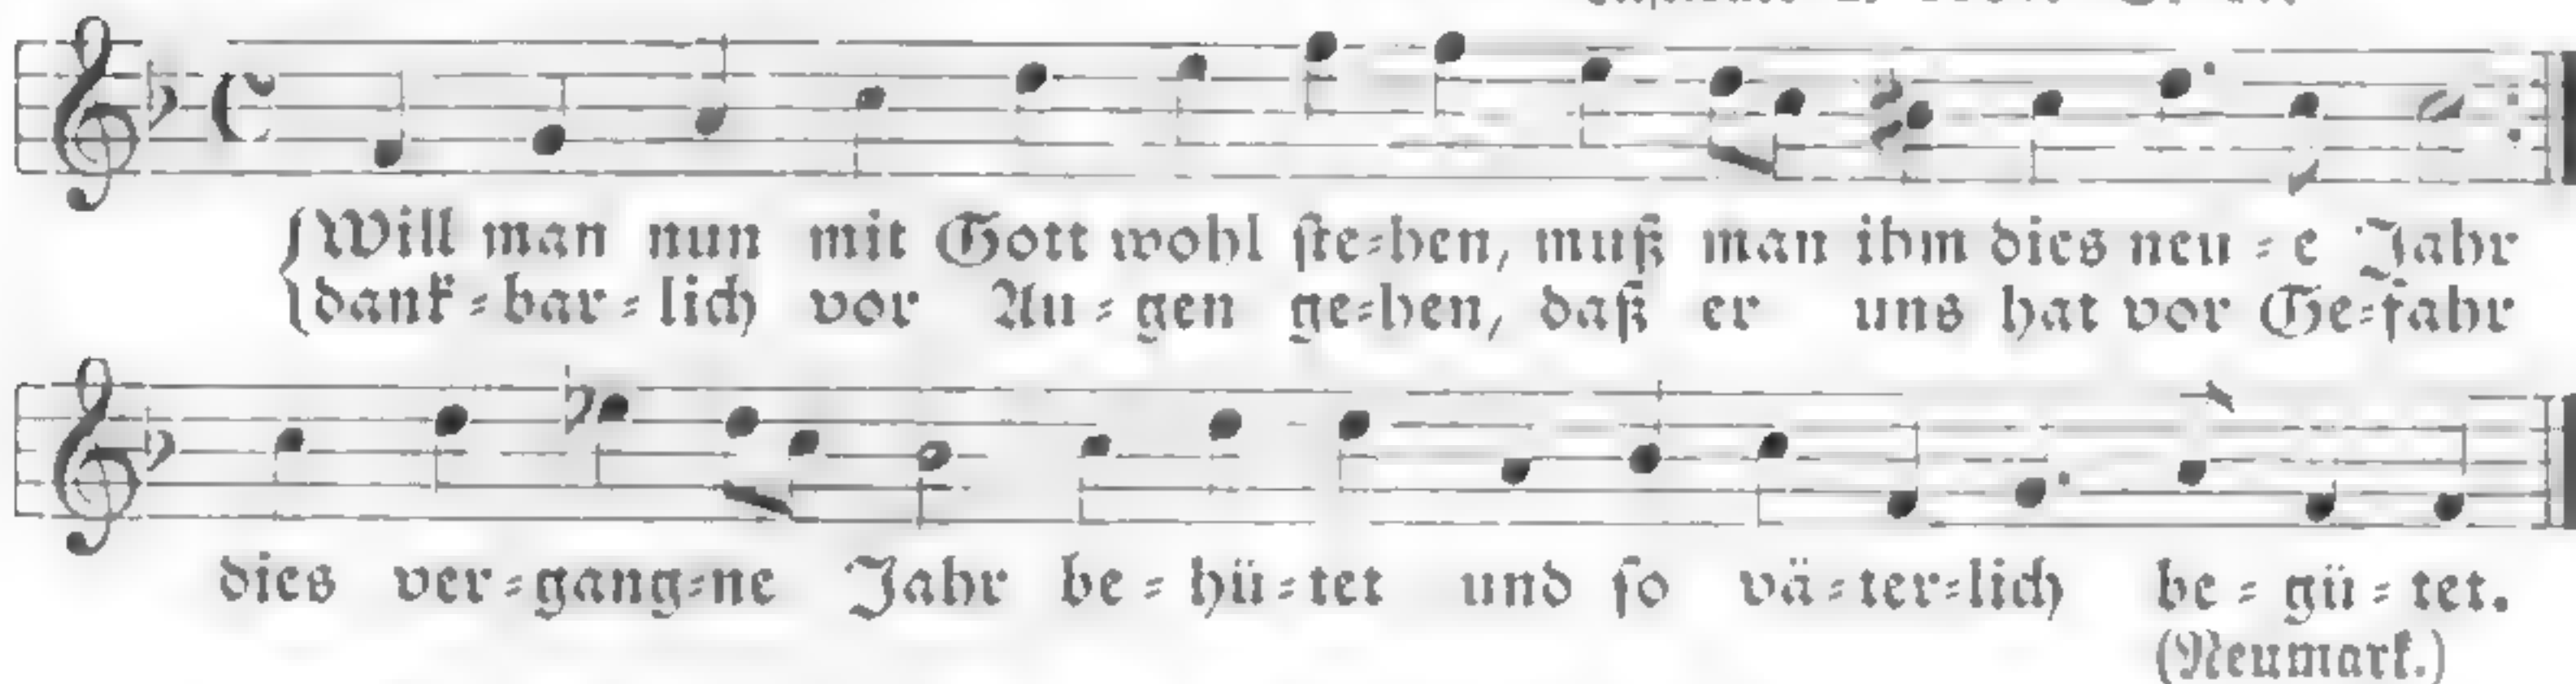 Will man nun mit Gott wohl ste=hen, muß man ihm dies neu = e Jahr
dank = bar = lich vor Au = gen ge=hen, daß er uns hat vor Ge=fahr
dies ver=gang=ne Jahr be = hü = tet und so vä = ter=lich be = gü = tet.
(Neumark.)